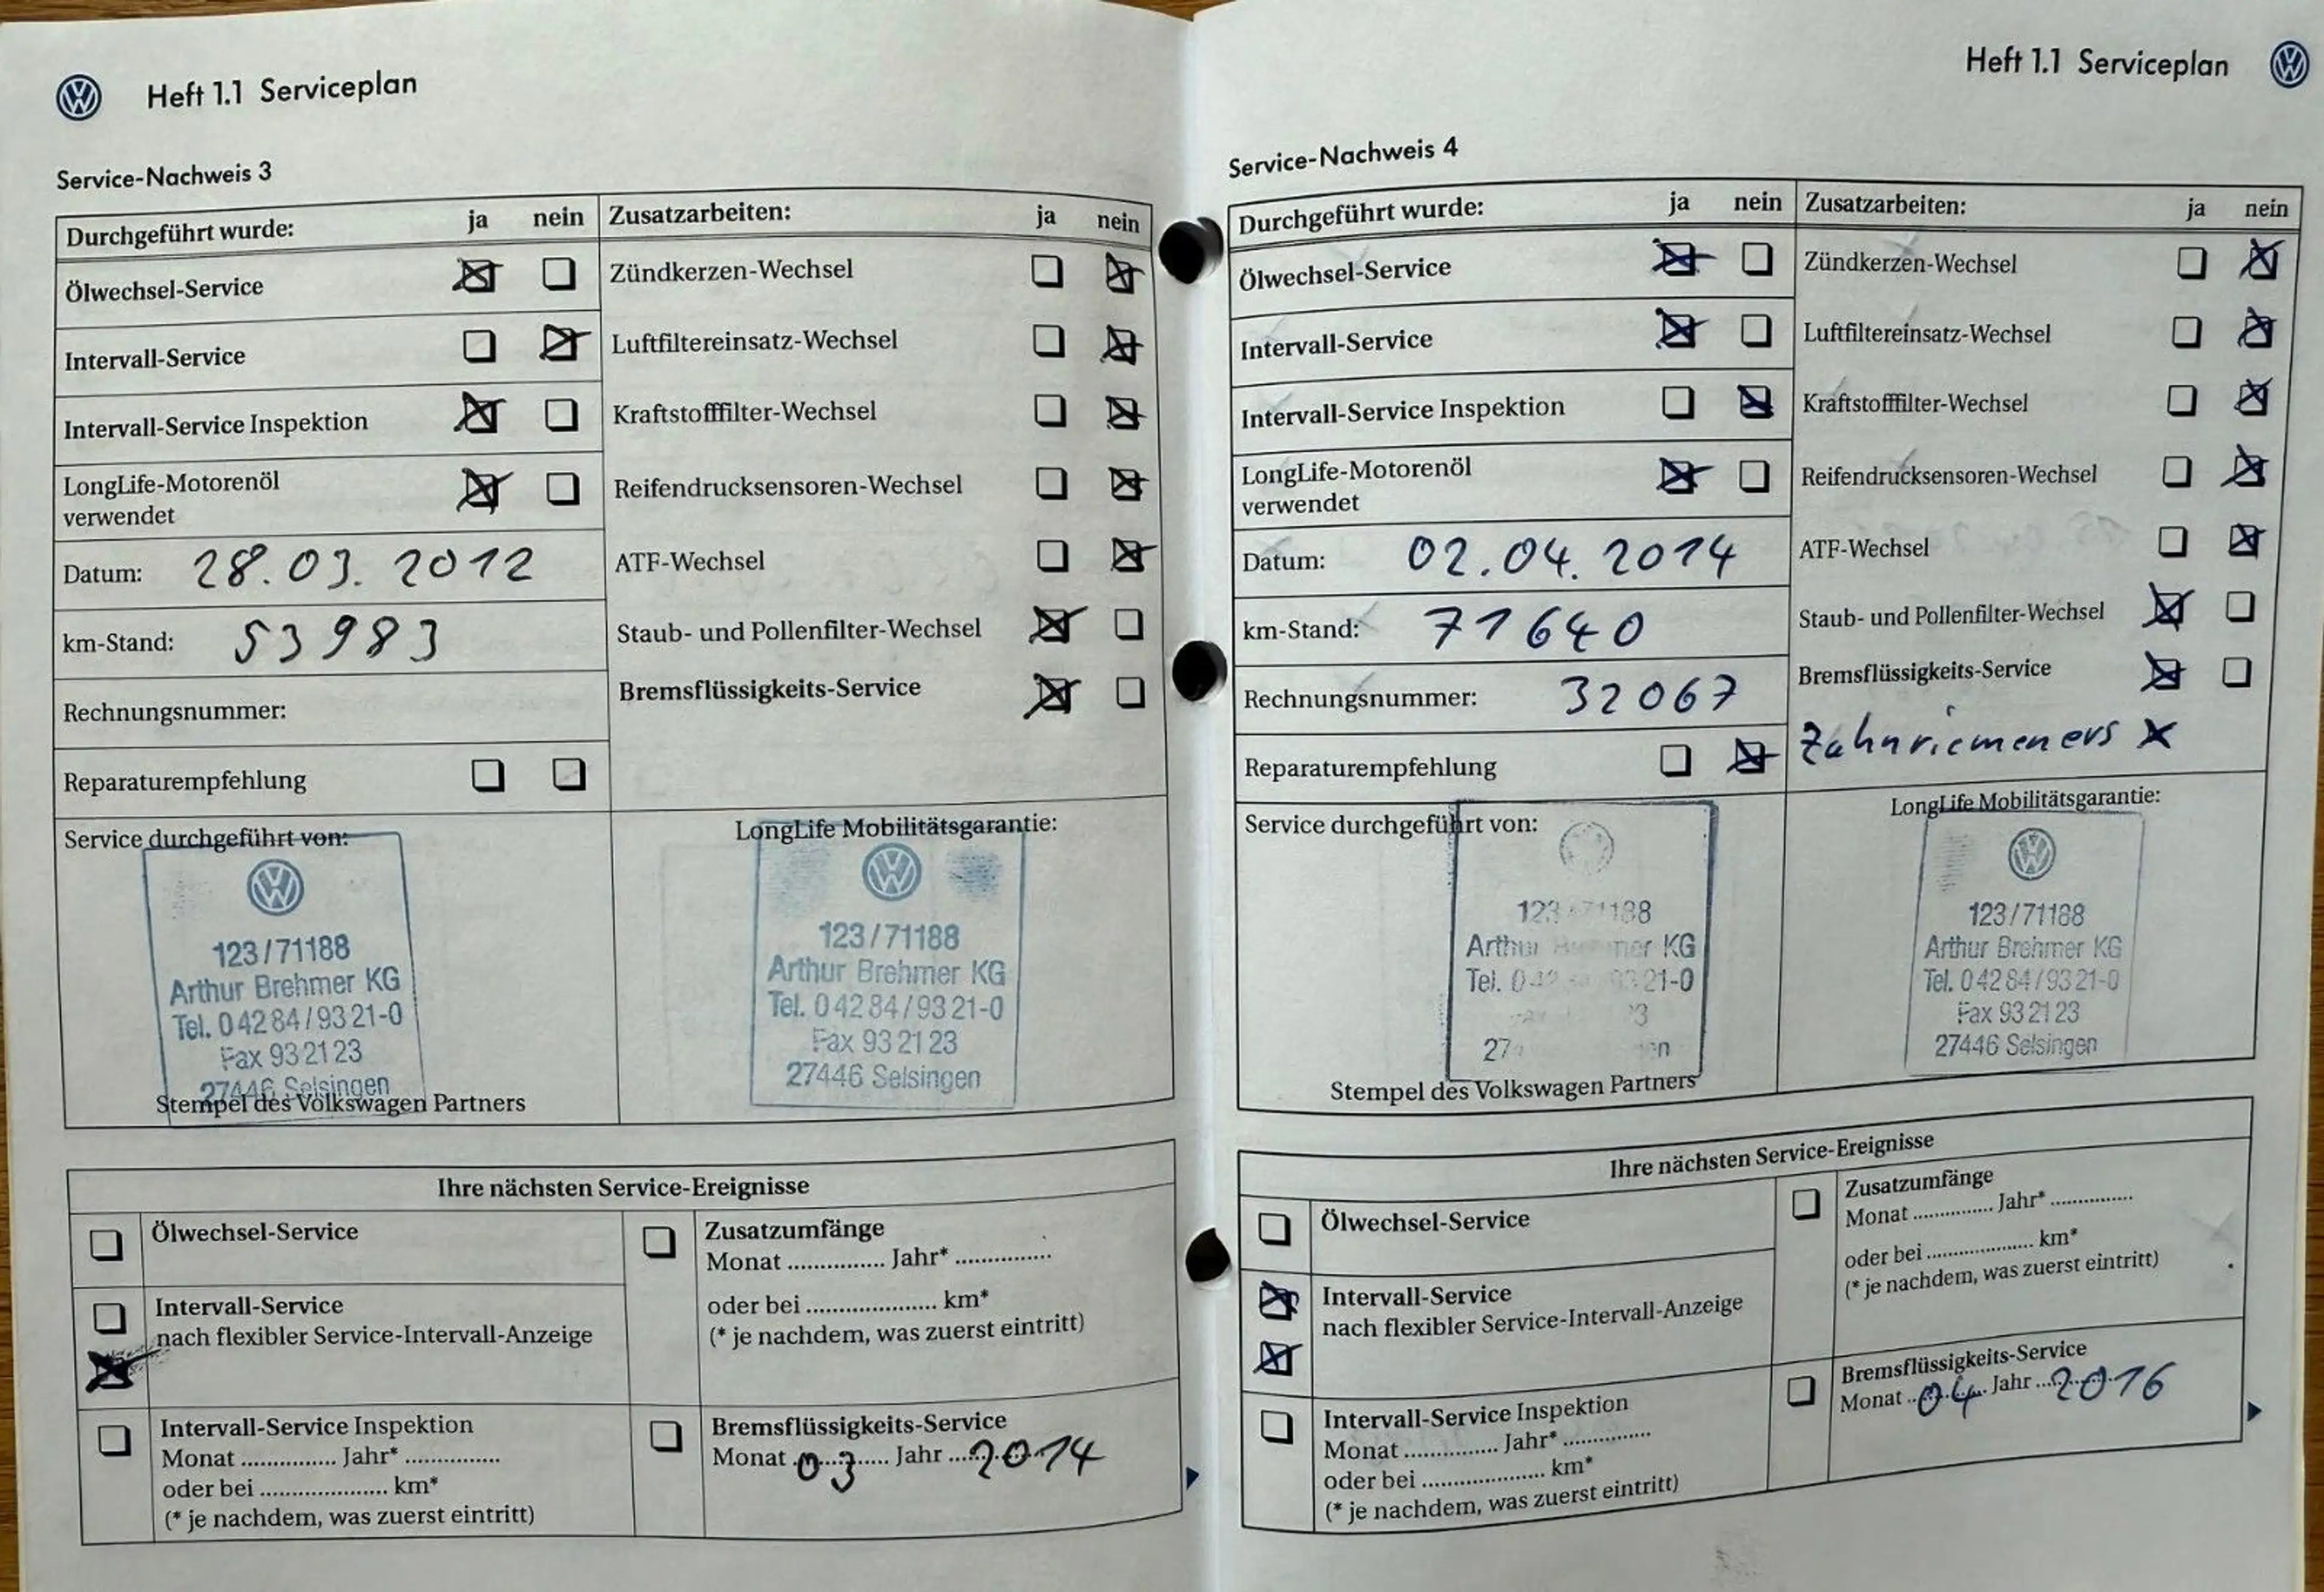 Heft 1.1 Serviceplan
Service-Nachweis 3
Durchgeführt wurde: ja nein
Ölwechsel-Service
Intervall-Service
Intervall-Service Inspektion
LongLife-Motorenöl
verwendet
Datum: 28.03.2012
km-Stand: 53983
Rechnungsnummer:
Reparaturempfehlung
Zusatzarbeiten: ja nein
Zündkerzen-Wechsel
Luftfiltereinsatz-Wechsel
Kraftstofffilter-Wechsel
Reifendrucksensoren-Wechsel
ATF-Wechsel
Staub- und Pollenfilter-Wechsel
Bremsflüssigkeits-Service
Service durchgeführt von:
123/71188
Arthur Brehmer KG
Tel. 04284/9321-0
Fax 932123
27446 Selsingen
Stempel des Volkswagen Partners
LongLife Mobilitätsgarantie:
123/71188
Arthur Brehmer KG
Tel. 04284/9321-0
Fax 932123
27446 Selsingen
Ihre nächsten Service-Ereignisse
Ölwechsel-Service
Intervall-Service
nach flexibler Service-Intervall-Anzeige
Intervall-Service Inspektion
Monat ............... Jahr* ...............
oder bei .................... km*
(* je nachdem, was zuerst eintritt)
Zusatzumfänge
Monat ............... Jahr* ...............
oder bei .................... km*
(* je nachdem, was zuerst eintritt)
Bremsflüssigkeits-Service
Monat 03 Jahr 2014
Heft 1.1 Serviceplan
Service-Nachweis 4
Durchgeführt wurde: ja nein
Ölwechsel-Service
Intervall-Service
Intervall-Service Inspektion
LongLife-Motorenöl
verwendet
Datum: 02.04.2014
km-Stand: 71640
Rechnungsnummer: 32067
Reparaturempfehlung
Zusatzarbeiten: ja nein
Zündkerzen-Wechsel
Luftfiltereinsatz-Wechsel
Kraftstofffilter-Wechsel
Reifendrucksensoren-Wechsel
ATF-Wechsel
Staub- und Pollenfilter-Wechsel
Bremsflüssigkeits-Service
Zahnriemen ers x
Service durchgeführt von:
Arthur KG
Tel.
Stempel des Volkswagen Partners
LongLife Mobilitätsgarantie:
123/71188
Arthur Brehmer KG
Tel. 04284/9321-0
Fax 932123
27446 Selsingen
Ihre nächsten Service-Ereignisse
Ölwechsel-Service
Intervall-Service
nach flexibler Service-Intervall-Anzeige
Intervall-Service Inspektion
Monat ............... Jahr* ...............
oder bei .................... km*
(* je nachdem, was zuerst eintritt)
Zusatzumfänge
Monat ............... Jahr* ...............
oder bei .................... km*
(* je nachdem, was zuerst eintritt)
Bremsflüssigkeits-Service
Monat 04 Jahr 2016